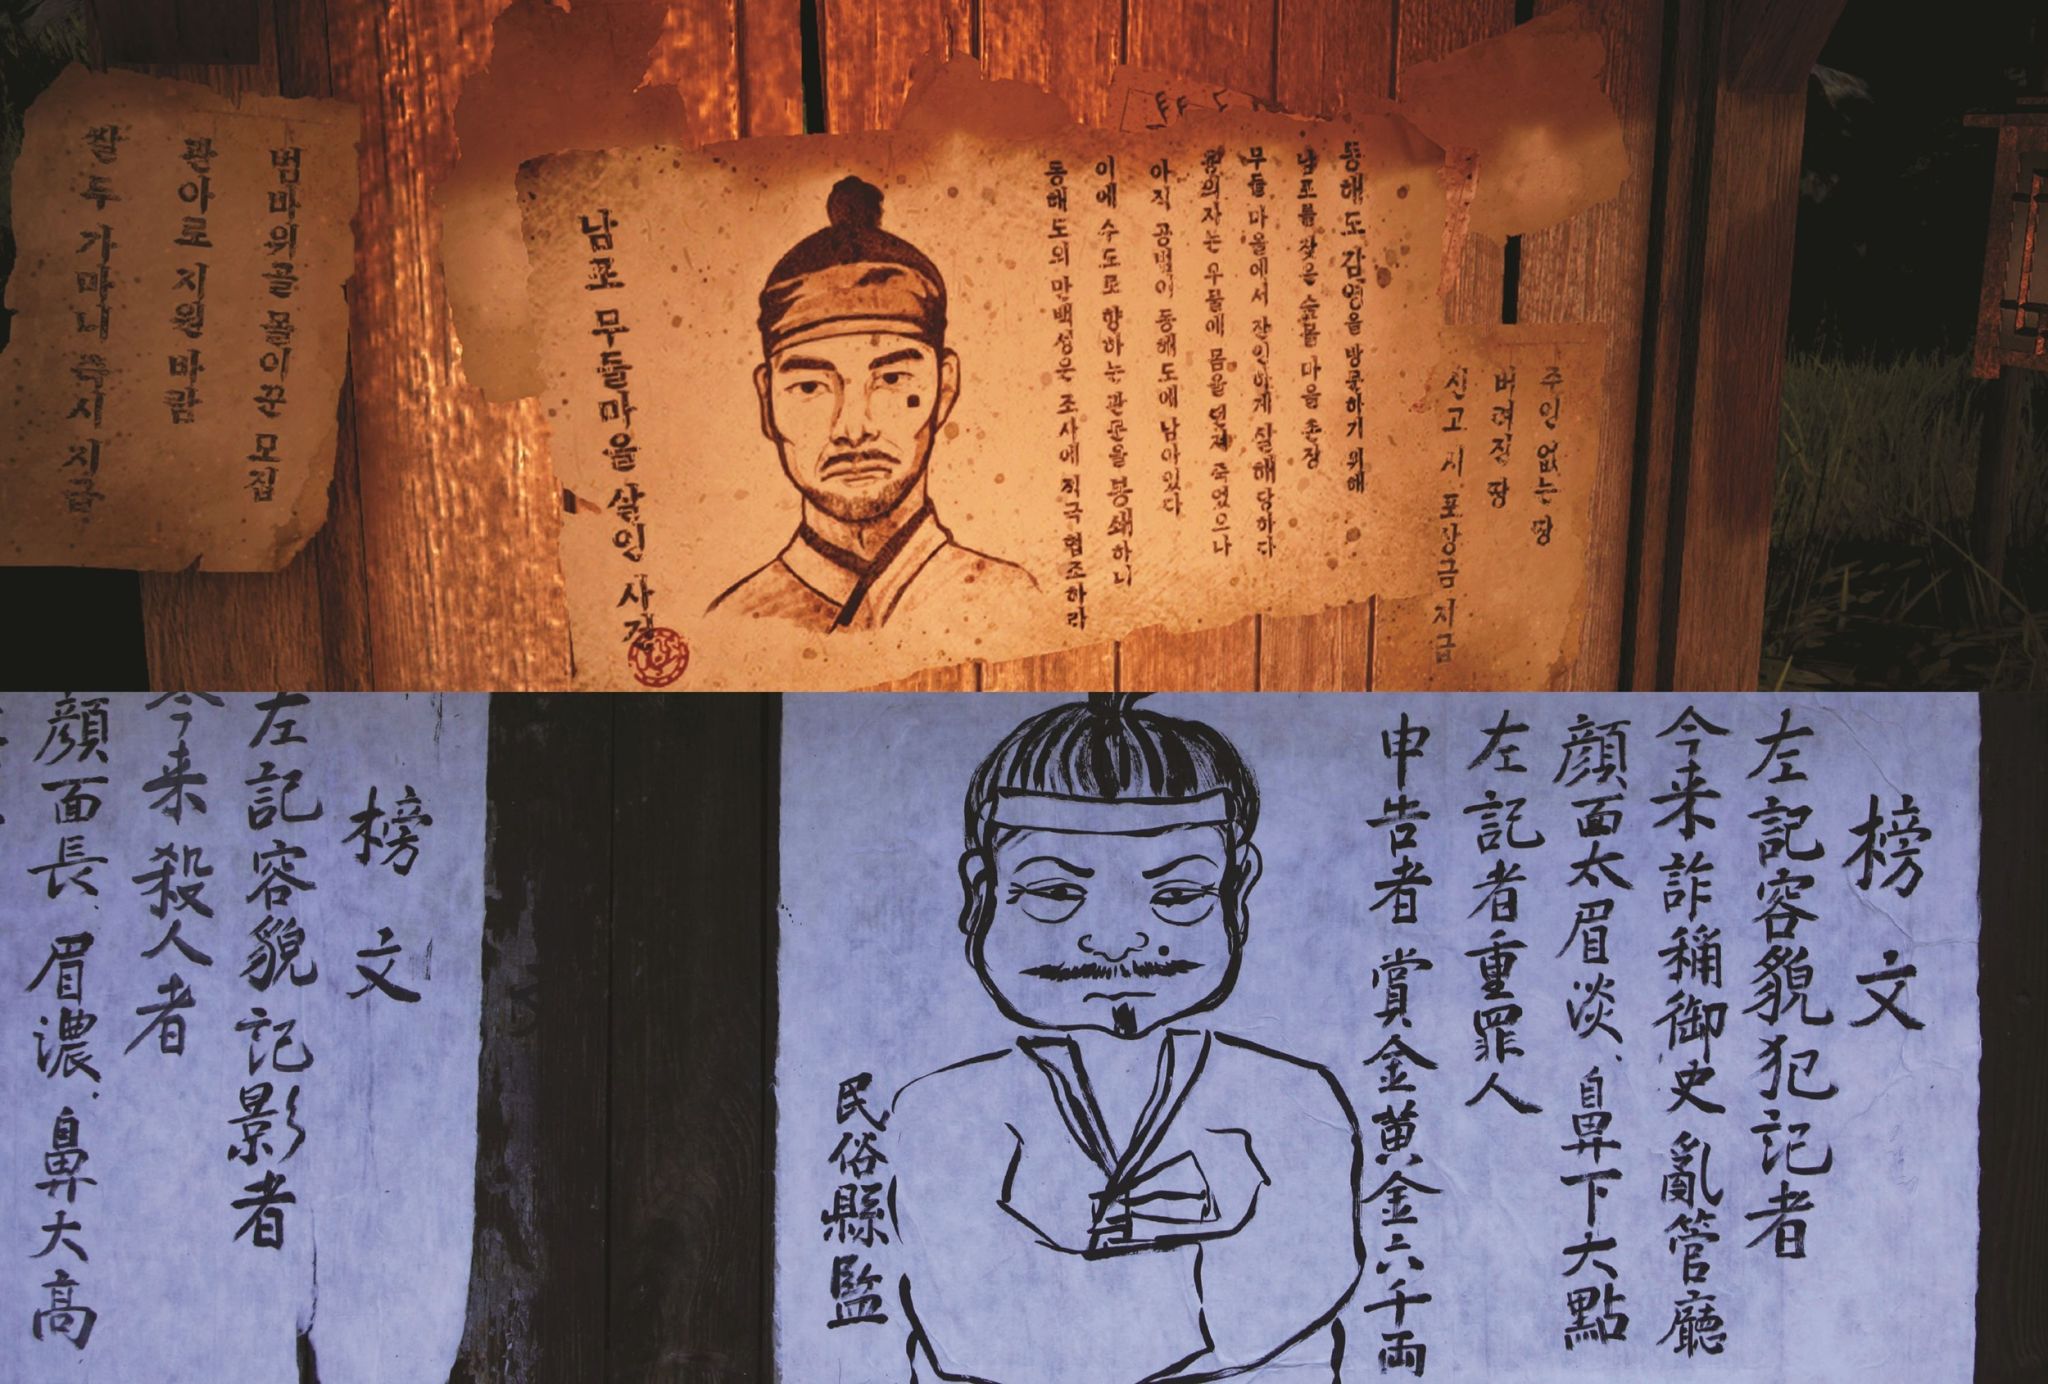 범바위골 몰이꾼 모집
관아로 지원 바람
쌀 두 가마니 즉시 지급
남포 무들마을 살인 사건
동해도 감영을 방문하기 위해
남포를 찾은 숲봄마을 촌장
무들마을에서 잔인하게 살해당하다
혐의자는 우물에 몸을 던져 죽었으나
아직 공범이 동해도에 남아있다
이에 수도로 향하는 관문을 봉쇄하니
동해도의 만백성은 조사에 적극 협조하라
주인 없는 땅
버려진 땅
신고 시 포상금 지급
榜文
左記容貌記影者
今来殺人者
顔面長、眉濃、鼻大高
榜文
左記容貌犯記者
今来詐稱御史亂管廳
顔面太眉淡、鼻下大點
左記者重罪人
申告者 賞金黄金六千両
民俗縣監